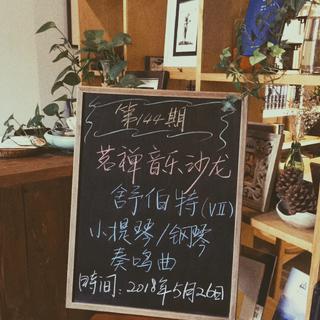 第144期
茗禅音乐沙龙
舒伯特(VII)
小提琴/钢琴
奏鸣曲
时间:2018年5月26日